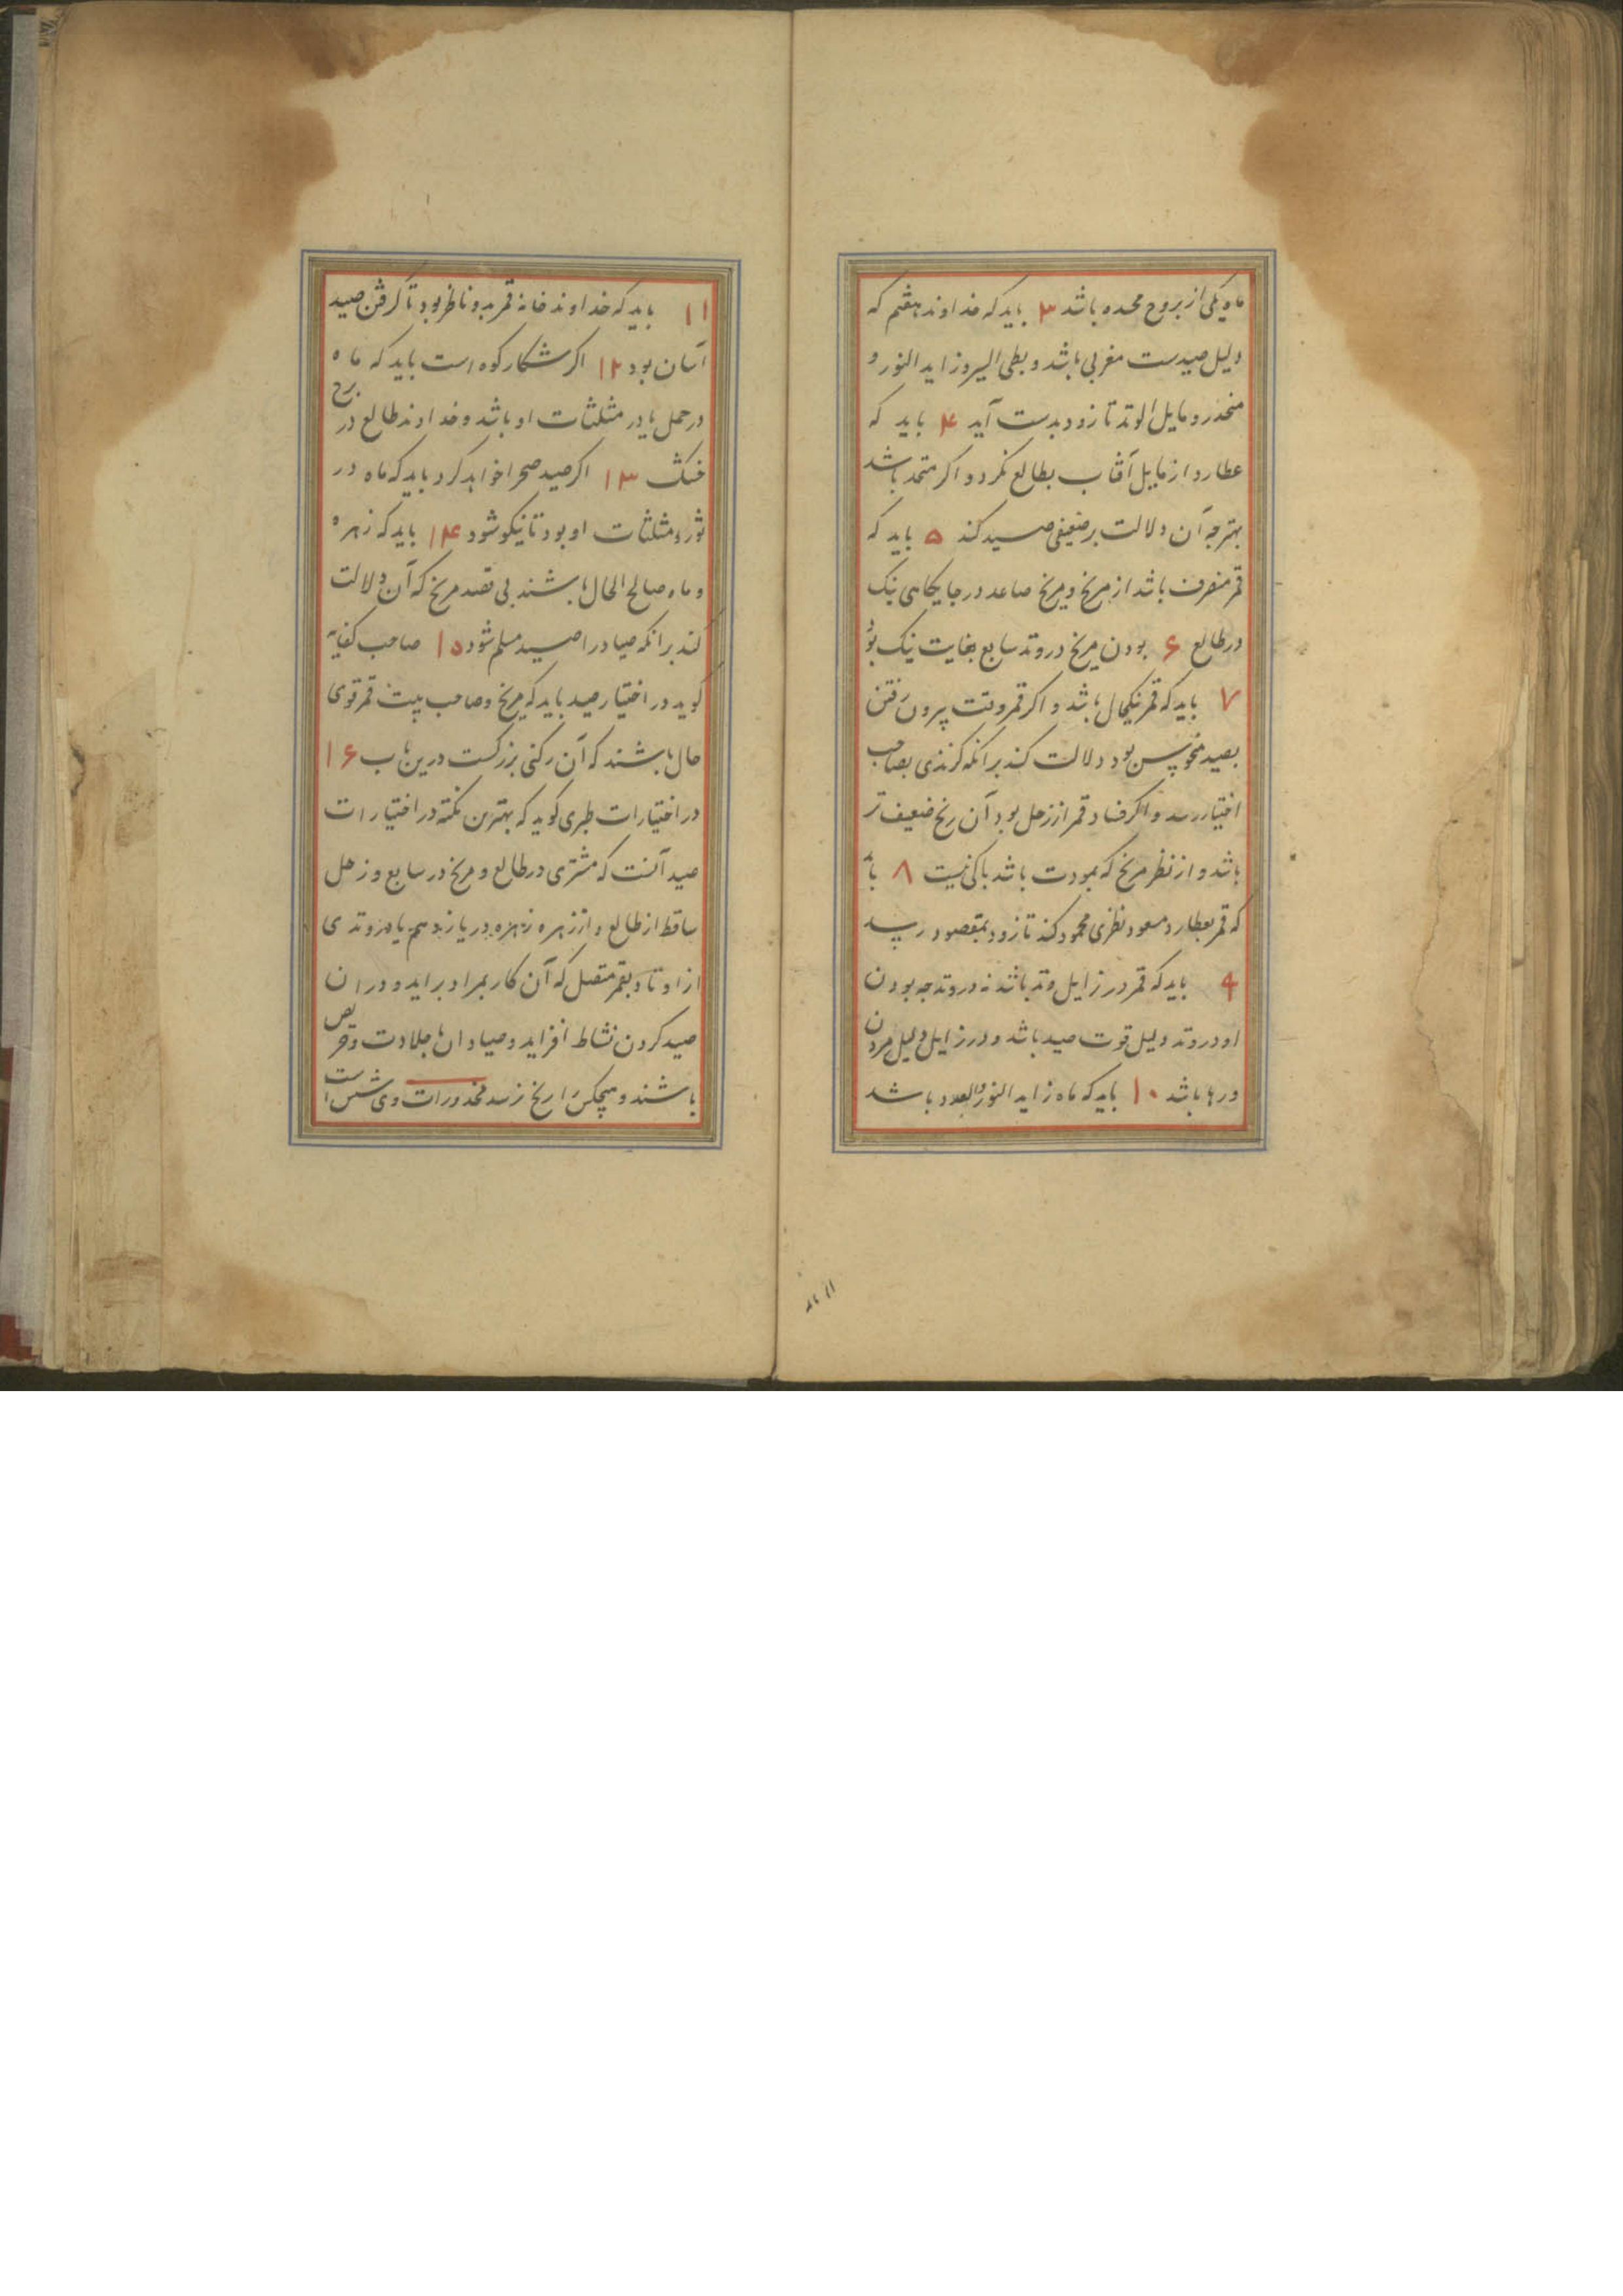 ماه یکی از بروج مجسده باشد ۳ باید که خداوند هفتم که
دلیل صیدست مغربی باشد و بطی السیر و زاید النور و
منحدر و مایل الوتد تا زود بدست آید ۴ باید که
عطارد از مایل آفتاب بطالع نکرد و اکر متحد باشد
بهتر چه آن دلالت بر ضعیفی صید کند ۵ باید که
قمر منصرف باشد از مریخ و مریخ صاعد در جایکاهی نیک
در طالع ۶ بودن مریخ در وتد سابع بغایت نیک بود
۷ باید که قمر نیکحال باشد و اکر قمر وقت بیرون رفتن
بصید منحوس بود دلالت کند برانکه کزندی بصاحب
اختیار رسد و اکر فساد قمر از زحل بود آن رنج ضعیف تر
باشد و از نظر مریخ که بمودت باشد باکی نیست ۸ با
که قمر بعطارد مسعود نظری محمود کند تا زود بمقصود رسد
۹ باید که قمر در زایل وتد باشد نه در وتد چه بودن
او در وتد دلیل قوت صید باشد و در زایل دلیل مردن
و رها باشد ۱۰ باید که ماه زاید النور والعدد باشد
۱۱ باید که خداوند خانه قمر بدو ناظر بود تا کرفتن صید
آسان بود ۱۲ اکر شکار کوه است باید که ماه
در حمل یا در مثلثات او باشد و خداوند طالع در برج
خشک ۱۳ اکر صید صحرا خواهد کرد باید که ماه در
ثور و مثلثات او بود تا نیکو شود ۱۴ باید که زهره
و ماه صالح الحال باشند بی قصد مریخ که آن دلالت
کند برانکه صیاد را صید مسلم شود ۱۵ صاحب کفایه
کوید در اختیار صید باید که مریخ و صاحب بیت قمر قوی
حال باشند که آن رکنی بزرکست درین باب ۱۶
در اختیارات طبری کوید که بهترین نکته در اختیارات
صید آنست که مشتری در طالع و مریخ در سابع و زحل
ساقط از طالع و از زهره زهره در یازدهم یا در وتدی
از اوتاد بقمر متصل که آن کار بمراد براید و دران
صید کردن نشاط افزاید و صیادان با جلادت و حریص
باشند و هیچکس را رنج نرسد محذورات وی شش است